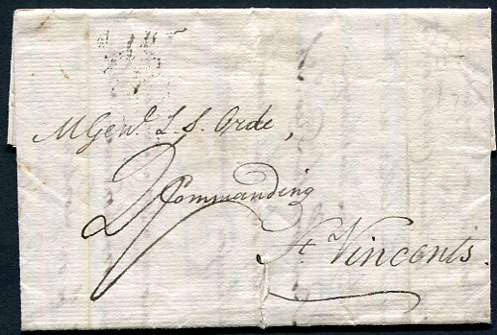 M Genl. L. S. Orde,
2
Commanding
St Vincents.